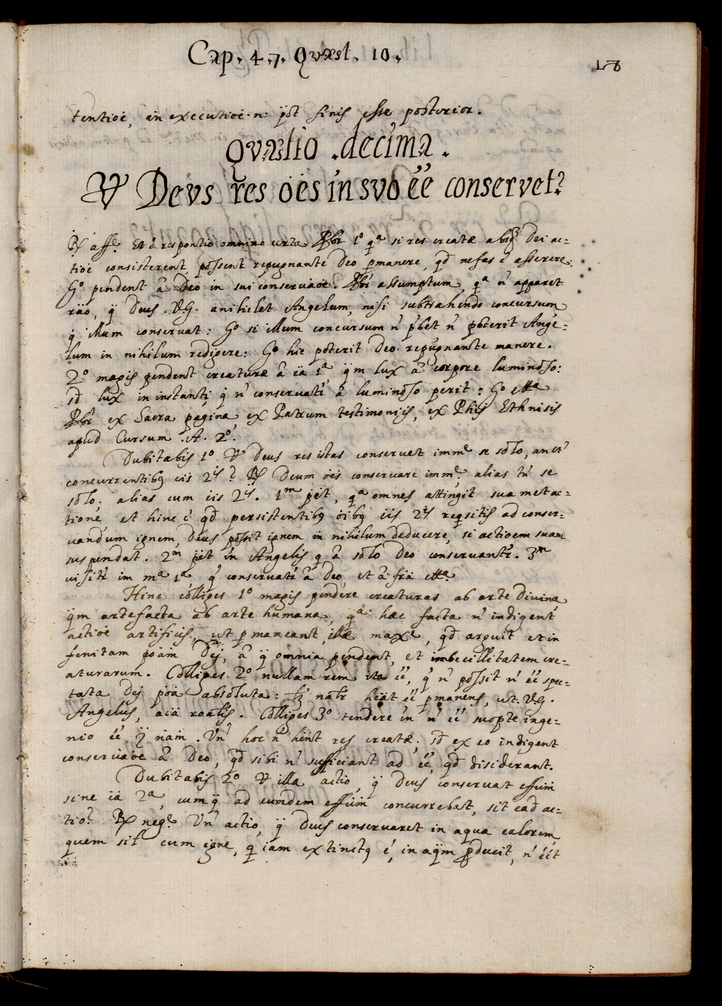 Cap. 47. Quæst. 10.
tentioe, in executioe n pot finis esse posterior.
Quæstio decima.
V Deus res oes in suo ee conservet?
R affe. Et e responsio omnino certa Pbr 1o qa si res creatæ absq Dei ac=
tioe consisterent, possent repugnante Deo pmanere, qd nefas e asserere:
Go pendent à Deo in sui conservaoe. Pbr assumptum, qa n apparet
rao, q Deus V.G. anihilet Angelum, nisi subtrahendo concursum
q illum conservat: Go si illum concursum n pbet n poterit Ange=
lum in nihilum redigere: Go hic poterit Deo repugnante manere.
2o magis pendent creaturæ à ca 1a qm lux à corpore luminoso:
sd lux in instanti q n conservatr à luminoso perit: Go etta
Pbr ex Sacra pagina ex Patrum testimonijs, ex Phis Ethnicis
apud Cursum A. 2o.
Dubitabis 1o V Deus res istas conservet imme se solo, an et
concurrentibq cis 2is? R Deum oes conservare imme, alias tn se
solo, alias cum cis 2is. 1m pet, qa omnes attingit sua met ac=
tione et hinc e qd persistentibq oibq cis 2is reqsitis ad conser=
vandum ignem, Deus possit ignem in nihilum deducere, si actioem suam
suspendat. 2m pet in Angelis q à solo Deo conservantr. 3m
visitr in ma 1a q conservatr à Deo, et à fra etta
Hinc colliges 1o magis pendere creaturas ab arte Divina
qm artefacta ab arte humana, qa hæc facta n indigent
actioe artificis, ut pmaneant illæ maxe, qd arguit et in
finitam poam Dej, à q omnia pendent, et imbecillitatem cre=
aturarum. Colliges 2o nullam rem ita ee, q n possit n ee spe=
tata Dej poa absoluta: lt natr heat ee pmanens, ut V.G.
Angelus, aia roalis. Colliges 3o tendere in n ee suopte inge=
nio ee q nam. Vn hoc n hent res creatæ, sd ex eo indigent
conservaoe à Deo, qd sibi n sufficiant ad ee, qd disiderant.
Dubitabis 2o V illa actio, q Deus conservat effum
sine ca 2a, cum q ad eundem effum concurrebat, sit ead ac=
tio? R nege. Vn actio, q Deus conservaret in aqua calorem
quem sil cum igne, q iam extinctq e, in aqm pducit, n eet